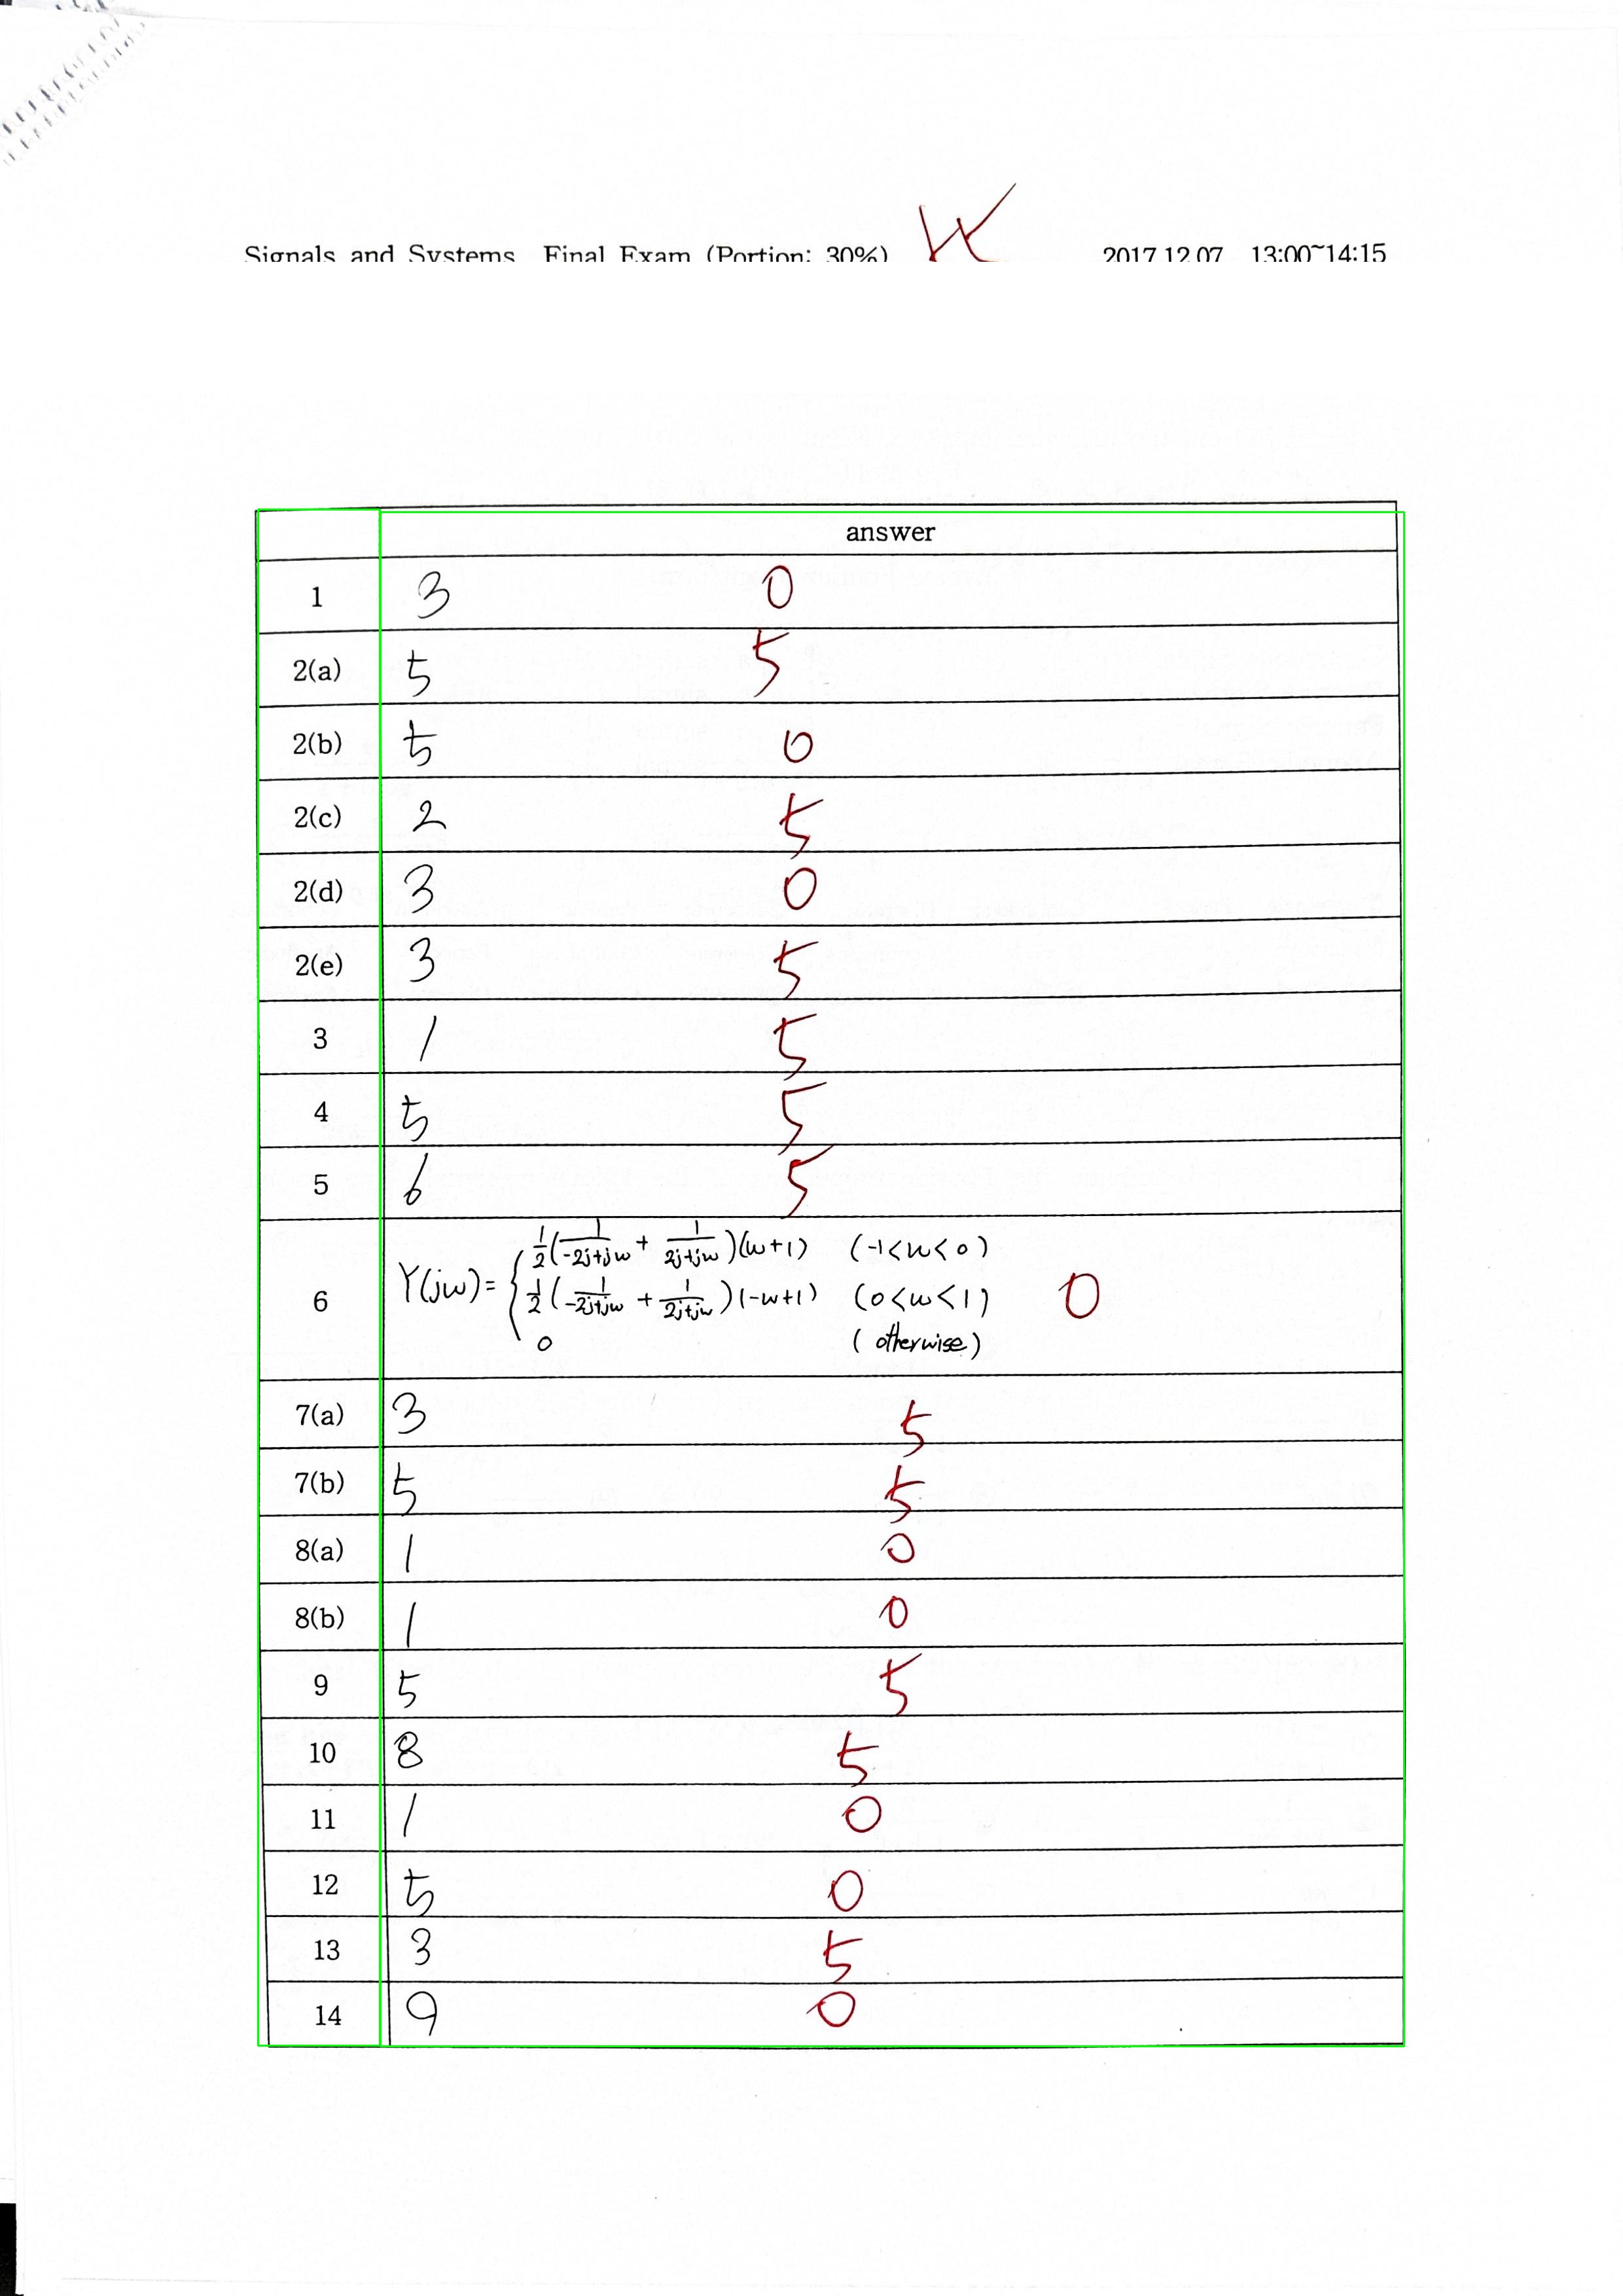 Signals and Systems Final Exam (Portion: 30%) 2017.12.07 13:00~14:15
answer
1 3 0
2(a) 5 5
2(b) 5 0
2(c) 2 5
2(d) 3 0
2(e) 3 5
3 1 5
4 5 5
5 6 5
6 Y(jw)= { 1/2(1/(-2j+jw) + 1/(2j+jw))(w+1) (-1<w<0)
1/2(1/(-2j+jw) + 1/(2j+jw))(-w+1) (0<w<1) 0
0 (otherwise)
7(a) 3 5
7(b) 5 5
8(a) 1 0
8(b) 1 0
9 5 5
10 8 5
11 1 0
12 5 0
13 3 5
14 9 0